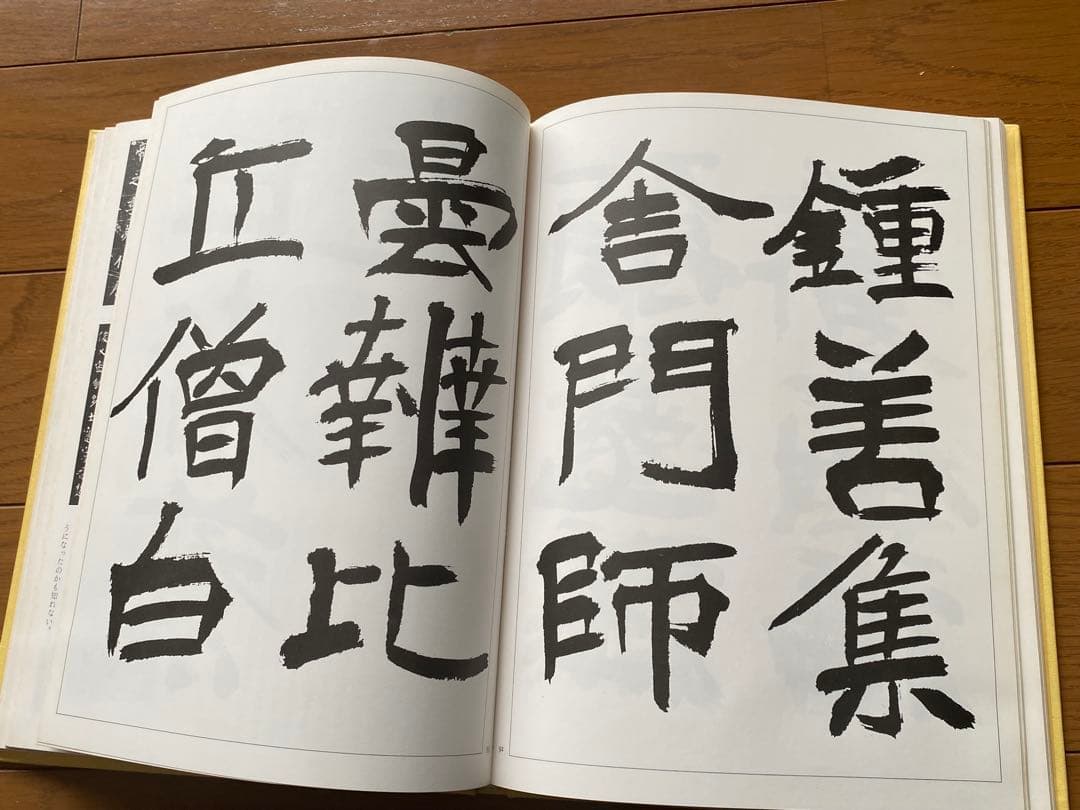 鍾善集
舎門師
曇比
丘僧白
うになったのかも知れない。